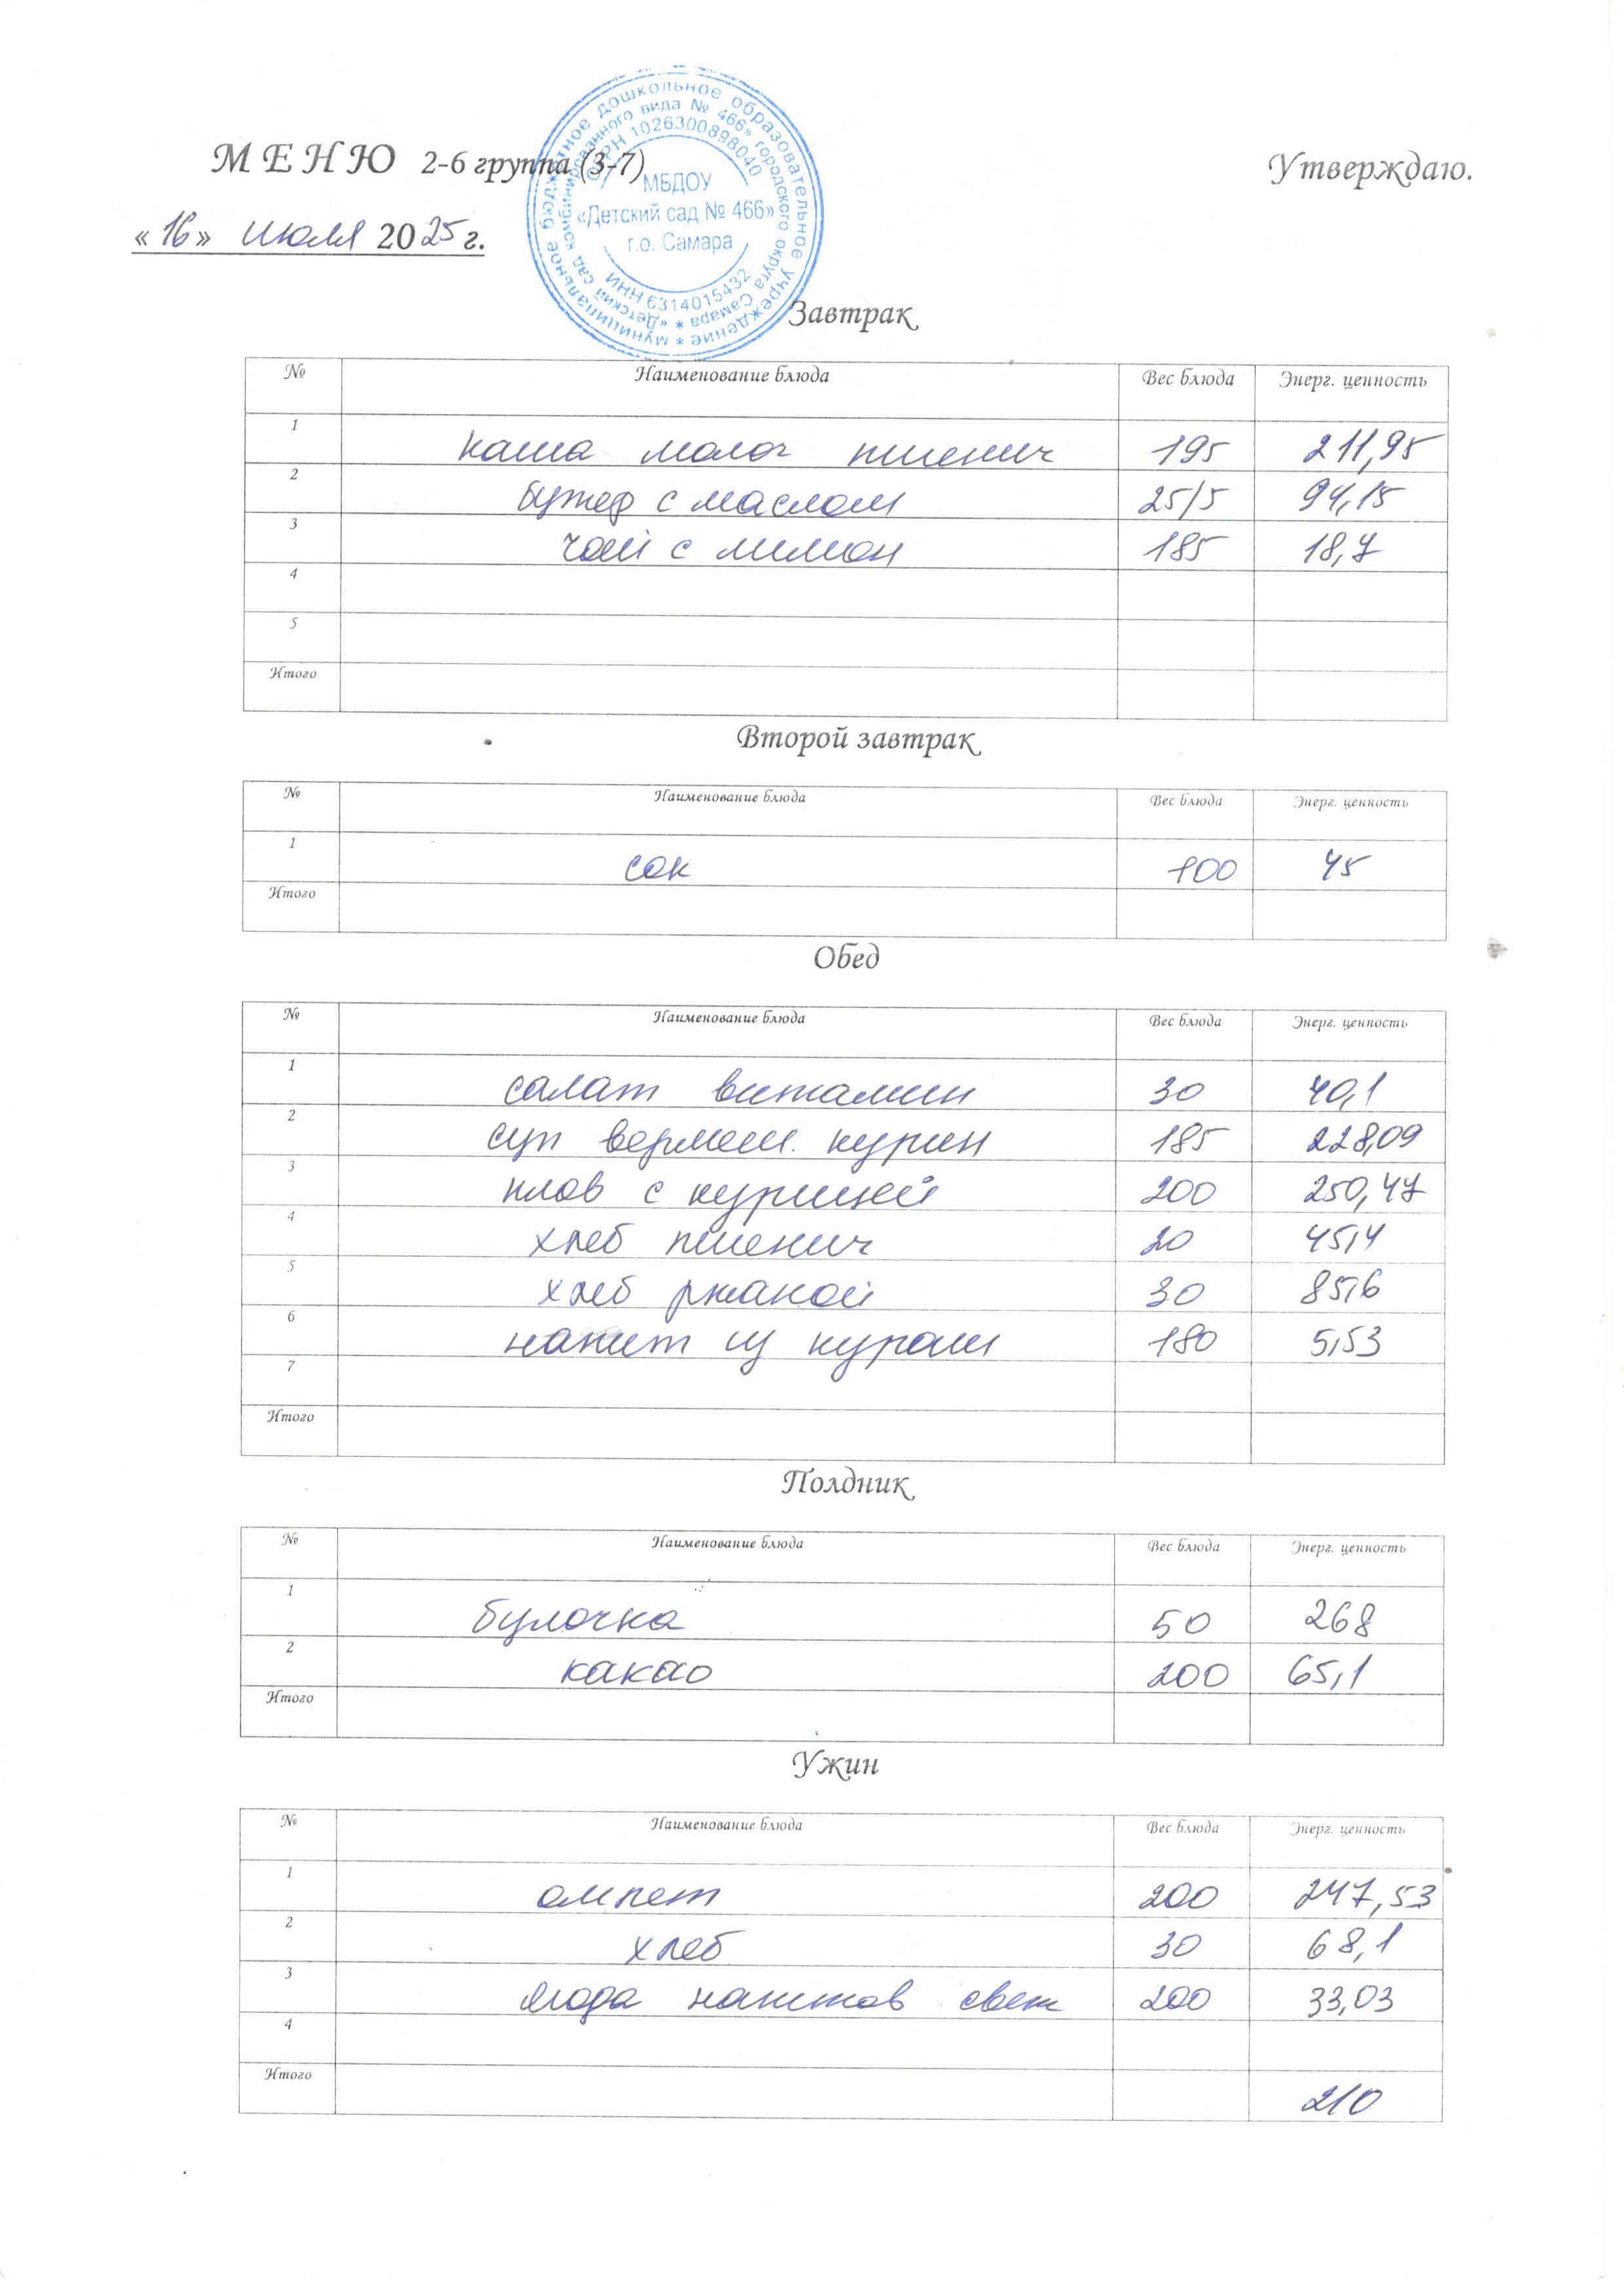 МЕНЮ 2-6 группа (3-7) Утверждаю.
«16» июля 2025 г.
муниципальное бюджетное дошкольное образовательное учреждение *
«Детский сад комбинированного вида № 466» городского округа Самара *
ОГРН 1026300898040
МБДОУ
«Детский сад № 466»
г.о. Самара
ИНН 6314015432
Завтрак
№ Наименование блюда Вес блюда Энерг. ценность
1 каша молоч пшенич 195 211,95
2 бутер с маслом 25/5 94,15
3 чай с лимон 185 18,7
4
5
Итого
Второй завтрак
№ Наименование блюда Вес блюда Энерг. ценность
1 сок 100 45
Итого
Обед
№ Наименование блюда Вес блюда Энерг. ценность
1 салат витамин 30 40,1
2 суп вермеш. курин 185 228,09
3 плов с курицей 200 250,47
4 хлеб пшенич 20 45,4
5 хлеб ржаной 30 85,6
6 напит из кураги 180 5,53
7
Итого
Полдник
№ Наименование блюда Вес блюда Энерг. ценность
1 булочка 50 268
2 какао 200 65,1
Итого
Ужин
№ Наименование блюда Вес блюда Энерг. ценность
1 омлет 200 247,53
2 хлеб 30 68,1
3 200 33,03
4
Итого 210